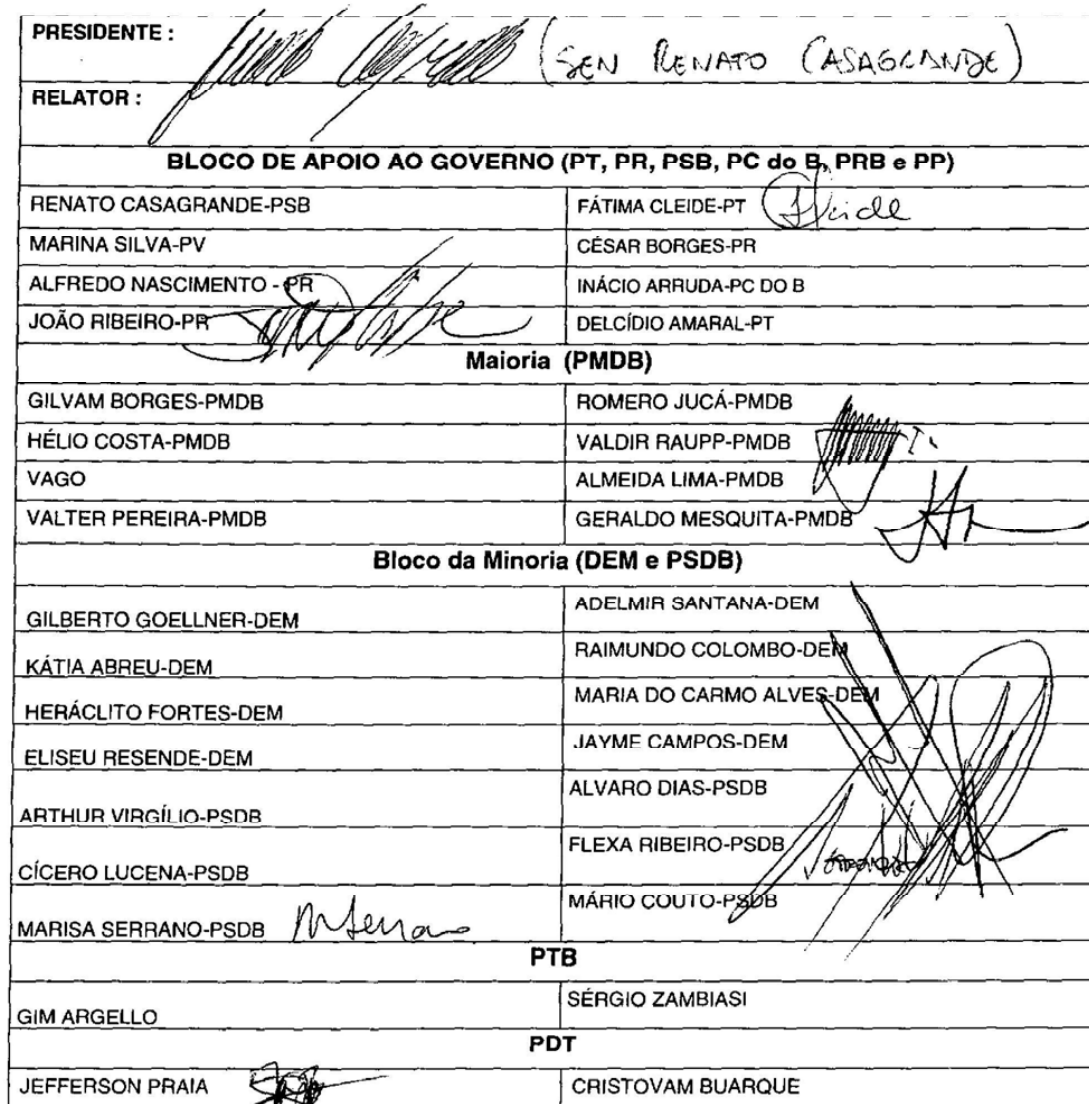 PRESIDENTE : (SEN RENATO CASAGRANDE)
RELATOR :
BLOCO DE APOIO AO GOVERNO (PT, PR, PSB, PC do B, PRB e PP)
RENATO CASAGRANDE-PSB FÁTIMA CLEIDE-PT
MARINA SILVA-PV CÉSAR BORGES-PR
ALFREDO NASCIMENTO - PR INÁCIO ARRUDA-PC DO B
JOÃO RIBEIRO-PR DELCÍDIO AMARAL-PT
Maioria (PMDB)
GILVAM BORGES-PMDB ROMERO JUCÁ-PMDB
HÉLIO COSTA-PMDB VALDIR RAUPP-PMDB
VAGO ALMEIDA LIMA-PMDB
VALTER PEREIRA-PMDB GERALDO MESQUITA-PMDB
Bloco da Minoria (DEM e PSDB)
GILBERTO GOELLNER-DEM ADELMIR SANTANA-DEM
KÁTIA ABREU-DEM RAIMUNDO COLOMBO-DEM
HERÁCLITO FORTES-DEM MARIA DO CARMO ALVES-DEM
ELISEU RESENDE-DEM JAYME CAMPOS-DEM
ARTHUR VIRGÍLIO-PSDB ALVARO DIAS-PSDB
CÍCERO LUCENA-PSDB FLEXA RIBEIRO-PSDB
MARISA SERRANO-PSDB MSerrano MÁRIO COUTO-PSDB
PTB
GIM ARGELLO SÉRGIO ZAMBIASI
PDT
JEFFERSON PRAIA CRISTOVAM BUARQUE